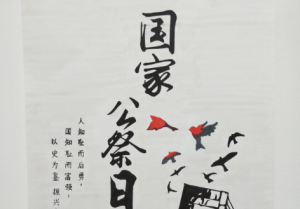 国家
公祭日
人知耻而后勇，
国知耻而富强，
以史为鉴 振兴